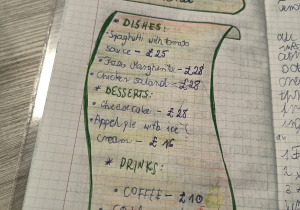 * DISHES:
• Spaghetti with tomato
sauce - £25
• Pizza Margherita - £28
• Chicken saland - £28
* DESSERTS:
• Cheesecake - £28
• Appel pie with ice
cream - £16
* DRINKS:
• COFFEE - £10